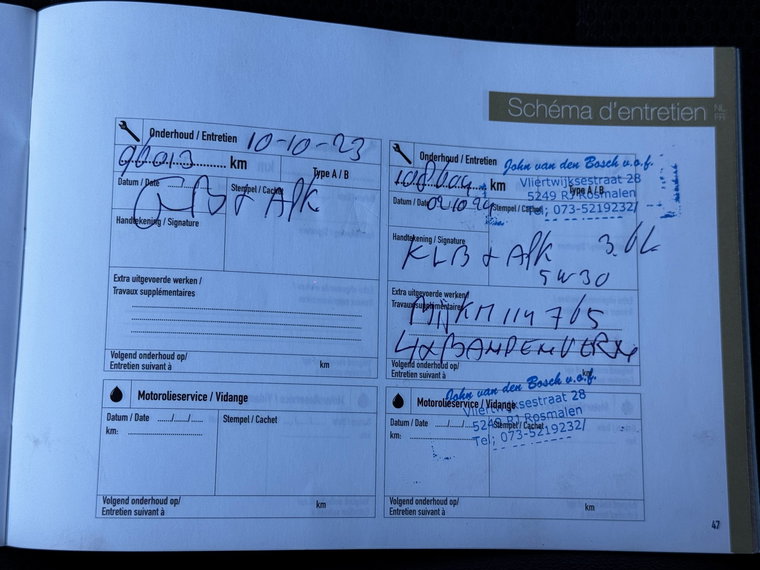 Schéma d'entretien NL FR
Onderhoud / Entretien 10-10-23
96013 km
Type A / B
Datum / Date
Stempel / Cachet
& APK
Handtekening / Signature
Extra uitgevoerde werken /
Travaux supplémentaires
Volgend onderhoud op/
Entretien suivant à km
Onderhoud / Entretien
km
Type A / B
Datum / Date
Stempel / Cachet
John van den Bosch v.o.f.
Vliertwijksestraat 28
5249 RJ Rosmalen
Tel; 073-5219232/
Handtekening / Signature
KLB & APK
5W30
Extra uitgevoerde werken/
Travaux supplémentaires
KM 114765
4x BANDEN
Volgend onderhoud op/
Entretien suivant à km
Motorolieservice / Vidange
Datum / Date ...../...../.....
Stempel / Cachet
km:
Volgend onderhoud op/
Entretien suivant à km
Motorolieservice / Vidange
Datum / Date
Stempel / Cachet
km:
John van den Bosch v.o.f.
Vliertwijksestraat 28
5249 RJ Rosmalen
Tel; 073-5219232/
Volgend onderhoud op/
Entretien suivant à km
47